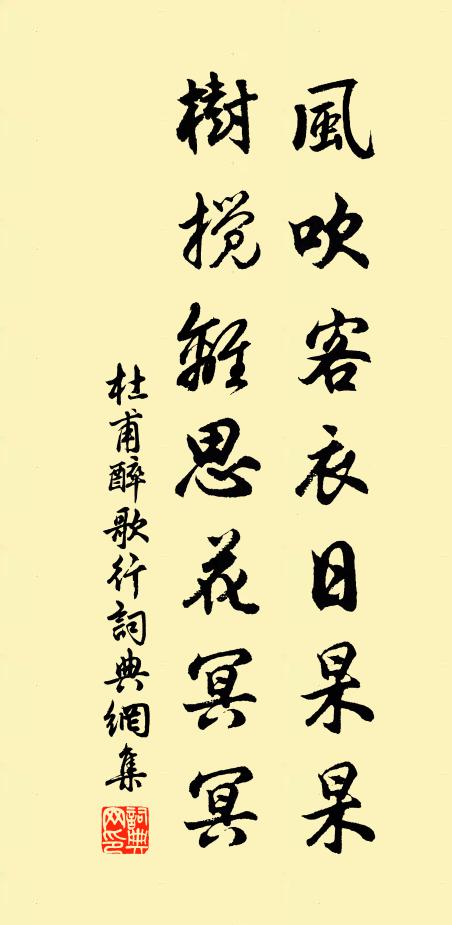 風吹客衣日杲杲
樹攪離思花冥冥
杜甫醉歌行詞典網集
詞典網印